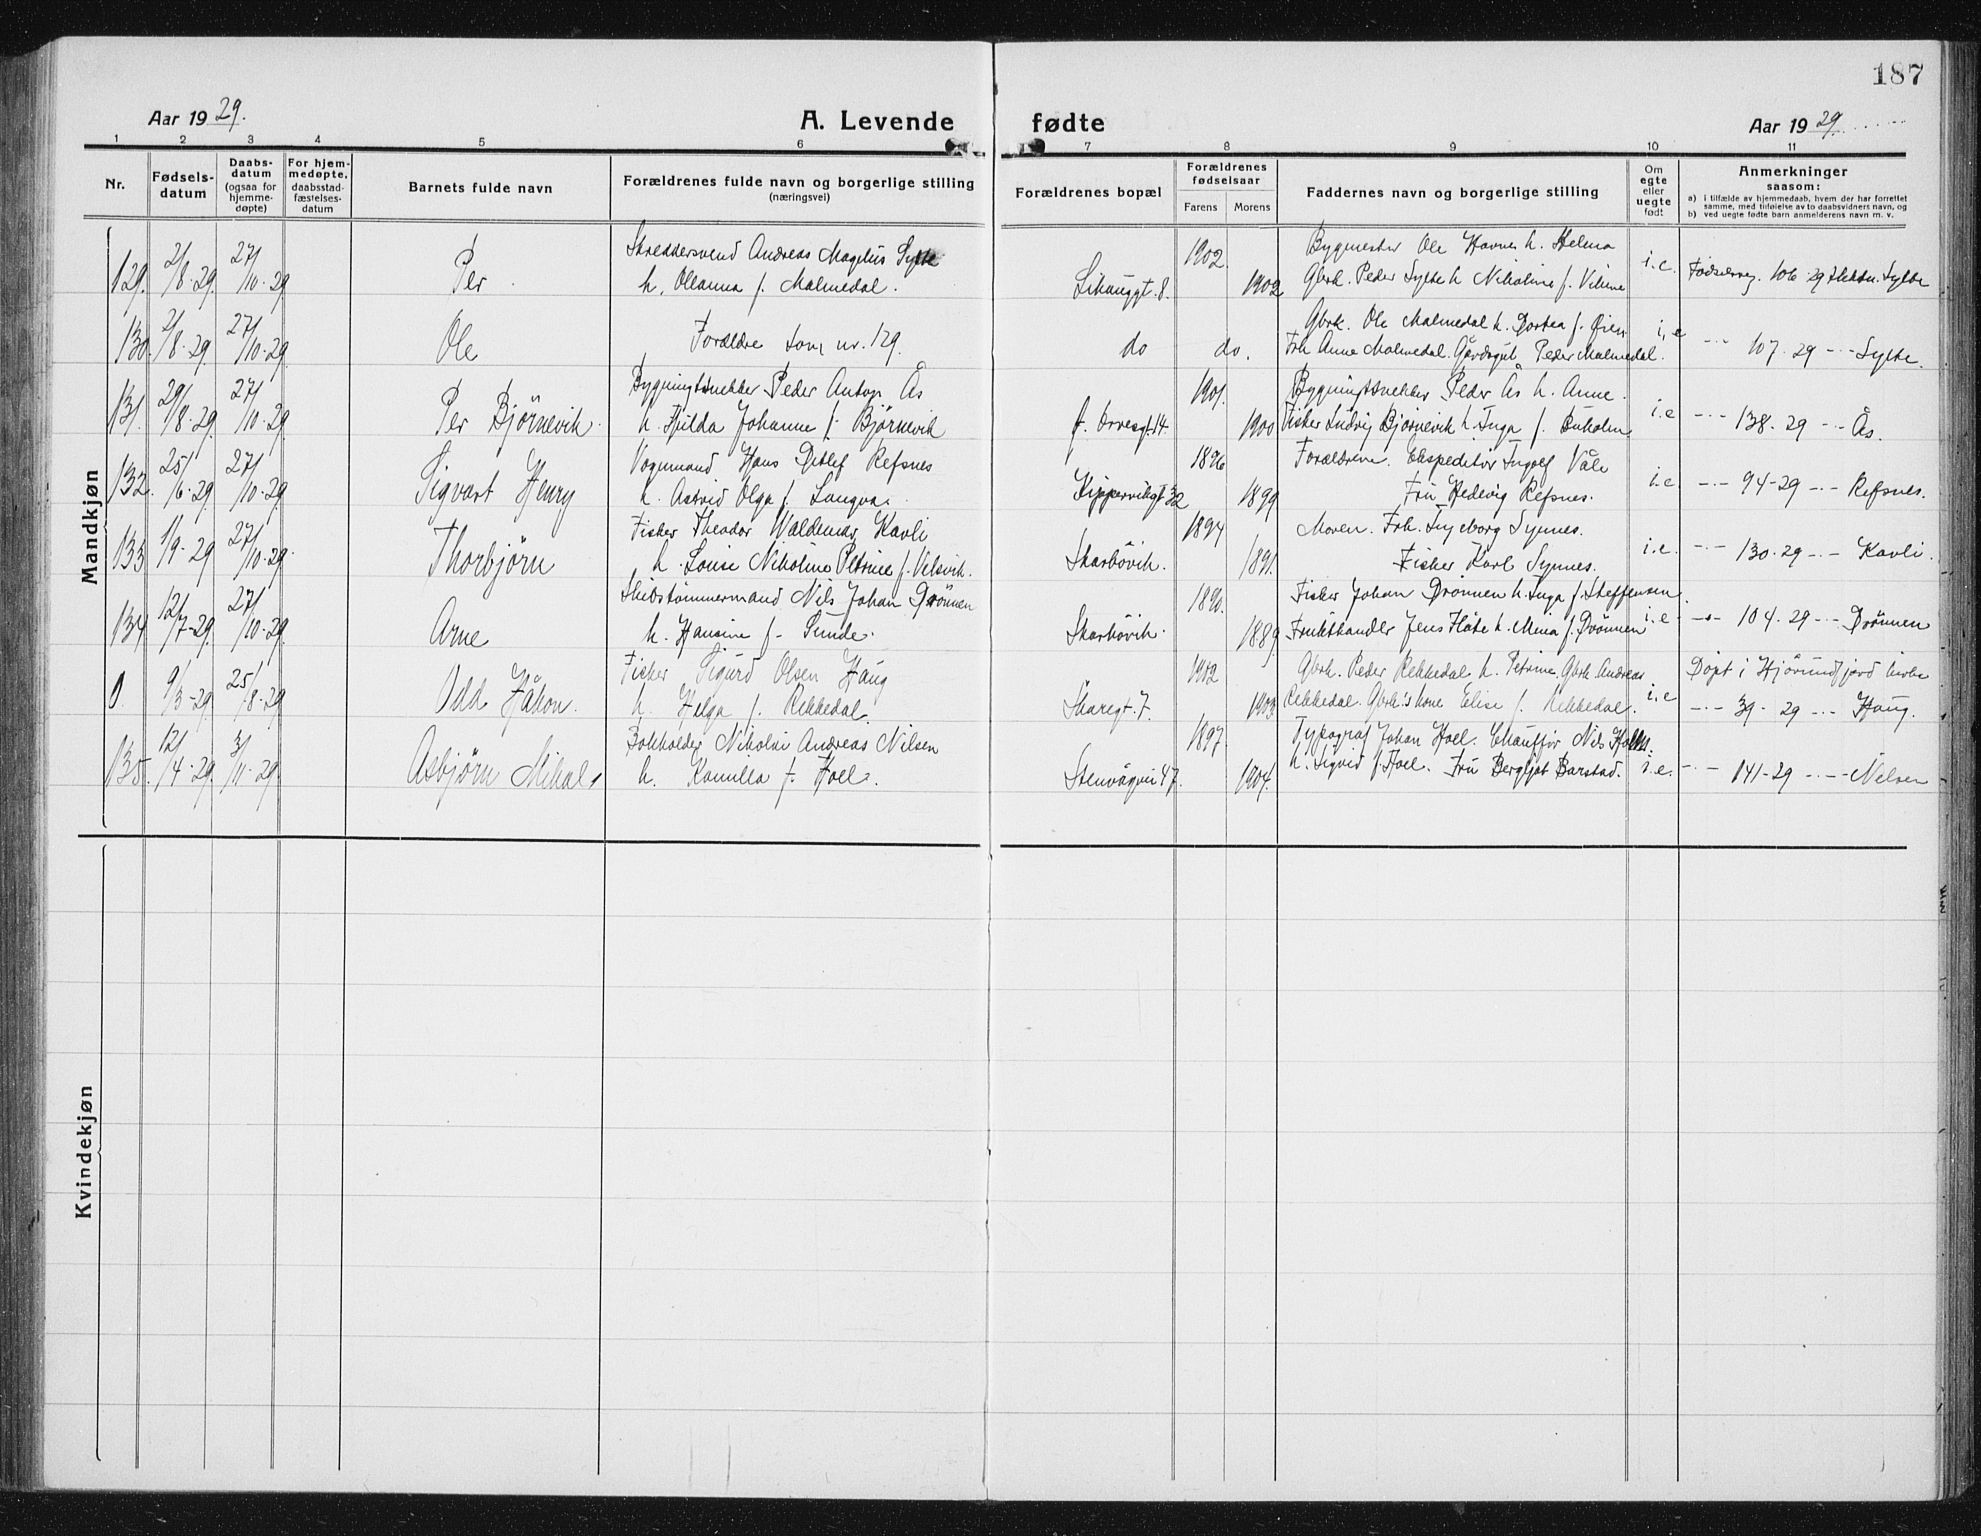 187
Aar 1929.
A. Levende fødte
Aar 1929
1 2 3 4 5 6 7 8 9 10 11
Nr.
Fødsels-
datum
Daabs-
datum
(ogsaa for
hjemme-
døpte)
For hjem-
medøpte,
daabsstad-
fæstelses-
datum
Barnets fulde navn
Forældrenes fulde navn og borgerlige stilling
(næringsvei)
Forældrenes bopæl
Forældrenes
fødselsaar
Farens Morens
Faddernes navn og borgerlige stilling
Om
egte
eller
uegte
født
Anmerkninger
saasom:
a) i tilfælde av hjemmedaab, hvem der har forrettet
samme, med tilføielse av to daabsvidners navn, og
b) ved uegte fødte barn anmelderens navn m. v.
Mandkjøn
129. 2/8-29. 27/10-29 Per
Skreddersvend Andreas Magelus Sylte
h. Oleanna f. Malmedal.
8. 1902. 1902
Bygmester Ole Havnes h. Helma
Gbrk. Peder Sylte h. Nikoline f. Viline
i.e. 106-29 Sylte
130. 2/8-29. 27/10-29. Ole
Forældre som nr. 129.
do do.
Gbrk. Ole Malmedal h. Dortea f. Øien
Frk Anne Malmedal. Gårdsgut Peder Malmedal.
i.e -"- 107-29 -"- Sylte.
131. 29/8-29. 27/10-29 Per Björnevik
Bygningssnekker Peder Anton Ås
h. Hilda Johanne f. Björnevik
14. 1901. 1900
Bygningssnekker Peder Ås h. Anne.
Fisker Ludvig Björnevik h. Inga f. Buholm.
i.e -"- 138-29 -"- Ås.
132. 25/6-29. 27/10-29. Sigvart Henry
Vognmand Hans Ditlef Refsnes
h. Astrid Olga f. Longva.
Kippervikgt 32 1896 1899
Forældrene. Ekspeditör Ingolf Våle
Fru Hedevig Refsnes.
i.e. -"- 94-29 -"- Refsnes.
133 1/9-29 27/10-29. Thorbjörn
Fisker Theodor Waldemar Kavli
h. Louise Nikoline Petrine f. Velsvik.
Skarbövik. 1894 1891.
Moren. Frk. Ingeborg Synnes.
Fisker Karl Synnes.
i.e. -"- 130-29 -"- Kavli.
134 12/7-29. 27/10-29. Arne
Skibstömmermand Nils Johan Drönnen
h. Hansine f. Sunde.
Skarbövik. 1890. 1889
Fisker Johan Drönnen h. Inga f. Steffensen.
Frukthandler Jens Flöte h. Mena f. Drönnen
i.e -"- 104-29 -"- Drönnen
0 9/3-29 25/8-29 Odd Håkon.
Fisker Sigurd Olsen Haug
h. Helga f. Rekkedal.
Skaregt. 7. 1902 1903
Gbrk. Peder Rekkedal h. Petrine. Gbrk Andreas
Rekkedal. Gbrk's kone Elise f. Rekkedal.
i.e Döpt i Hjörundfjord kirke
-"- 39-29 -"- Haug.
135. 12/4-29. 3/11-29 Asbjörn Mikal
Bokholder Nikolai Andreas Nilsen
h. Kamilla f. Hoel.
Stenvågvei 47. 1897. 1904.
Typograf Johan Hoel. Chauffør Nils
h. Sigrid f. Hoel. Fru Bergljot Barstad.
i.e. -"- 141-29 -"- Nilsen
Kvindekjøn